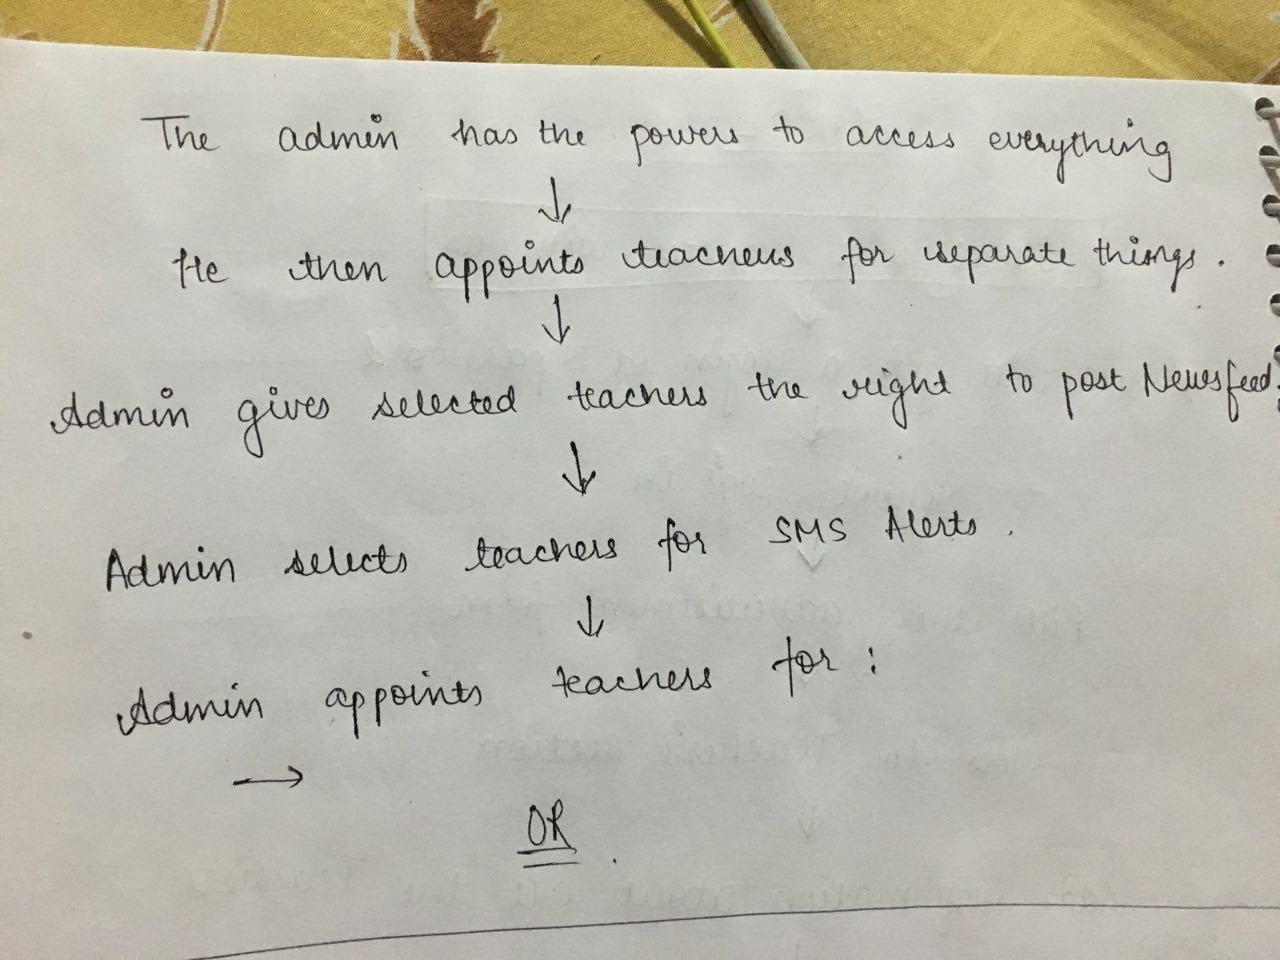 The admin has the powers to access everything
↓
He then appoints teachers for separate things.
↓
Admin gives selected teachers the right to post Newsfeed.
↓
Admin selects teachers for SMS Alerts.
↓
Admin appoints teachers for:
→
OR